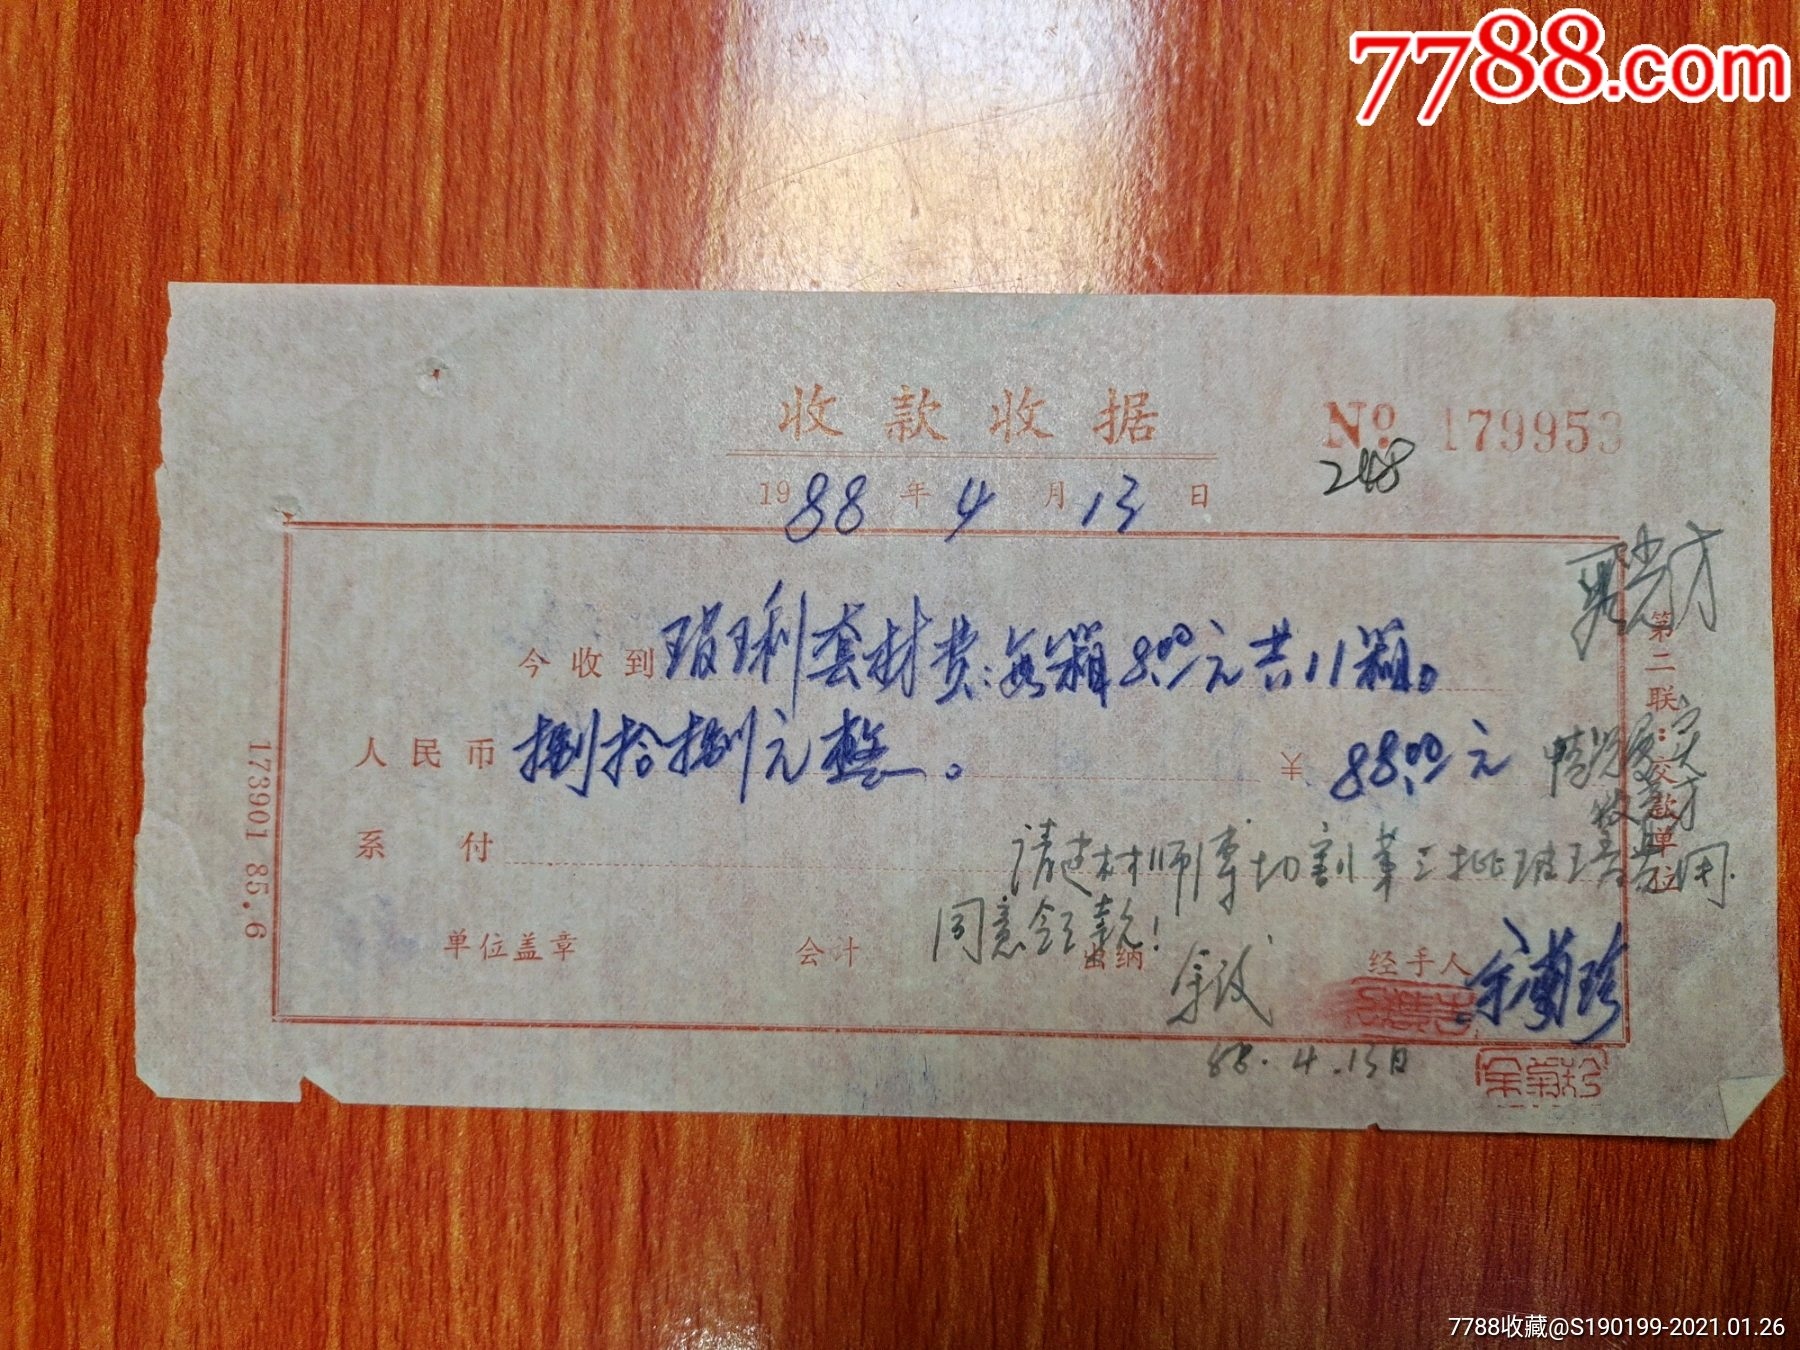 7788.com
收款收据
No 179953
248
1988年4月13日
今收到玻利套材费:每箱8.00元共11箱。
人民币捌拾捌元整。 ¥88.00元
系付
请建材师傅切割第三排玻璃用.
同意领款!
单位盖章 会计 出纳 经手人
88.4.13日
第二联:交款单位
情况属实
173901 85.6
7788收藏@S190199-2021.01.26